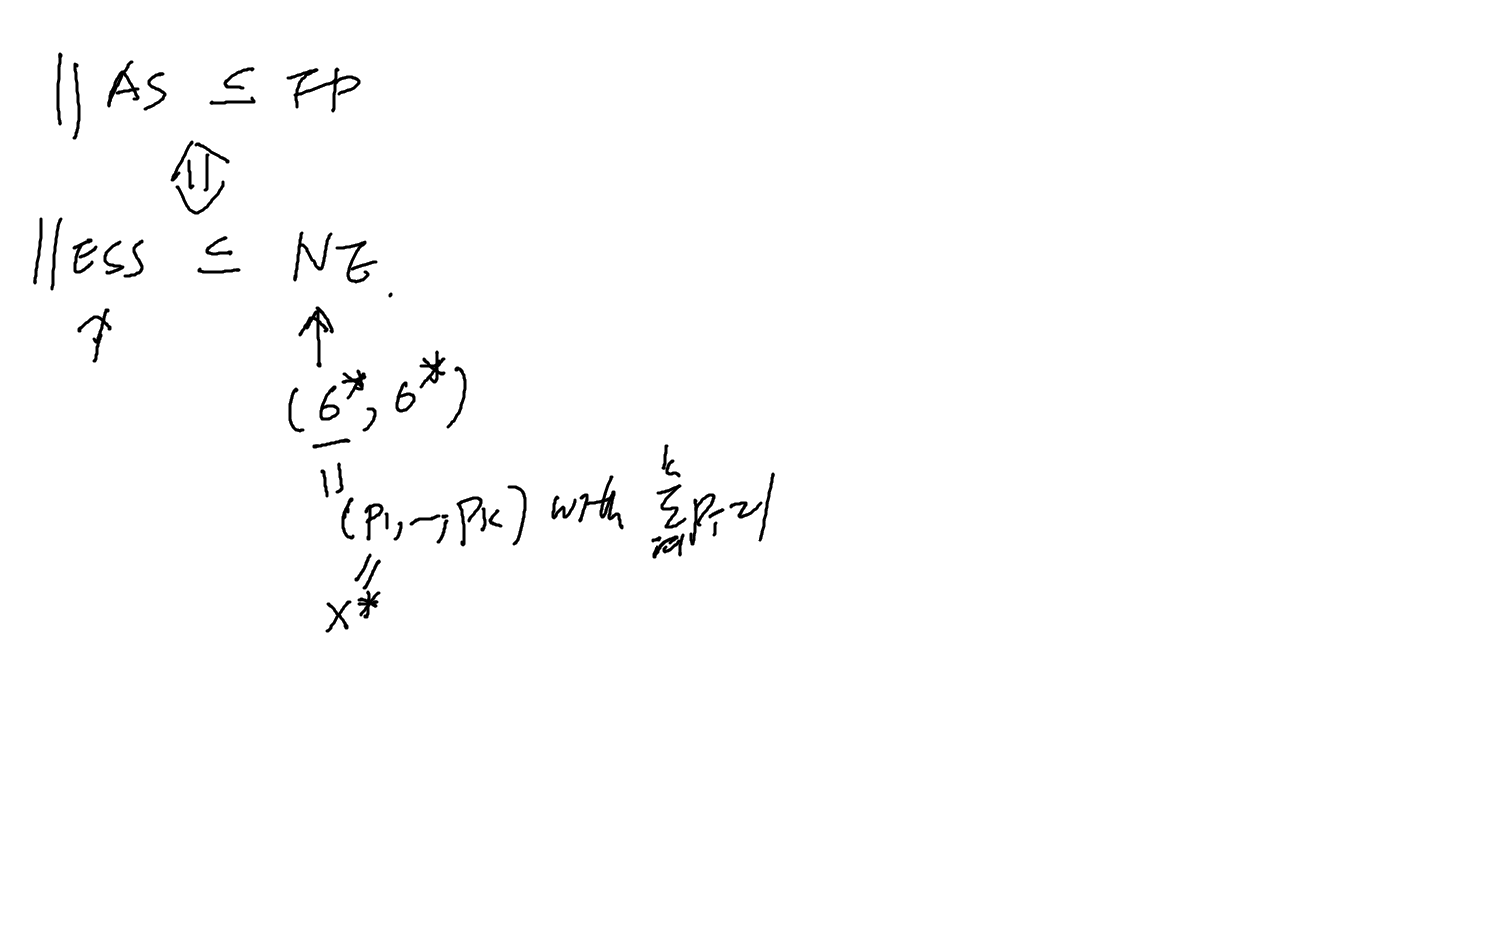 || AS ⊆ FP
⇕
|| ESS ⊆ NE.
↑ ↑
(6*, 6*)
||
(p1, ~, pk) with k∑i=1 pi = 1
||
x*